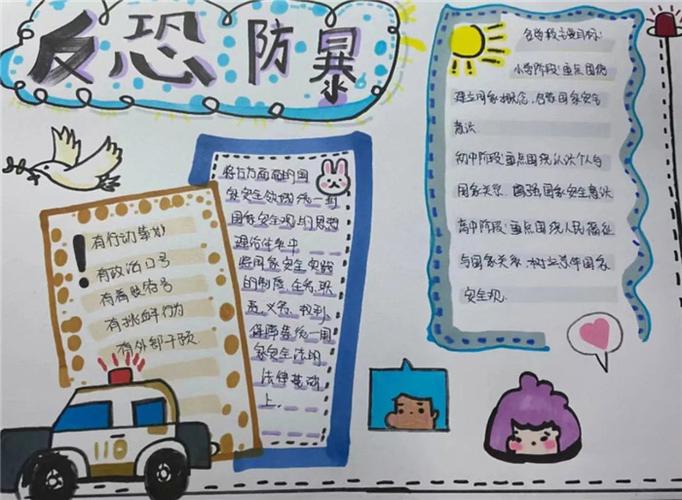 反恐防暴
有行动策划
有政治口号
有着装符号
有挑衅行为
有外部干预
将各方面面的国
家安全领域统一到
国家安全观的思想
理论体系中
将国家安全实践
的制度、任务、职
责、义务、权利、
保障等统一用
家安全法的
法律基础
上
各学段主要目标:
小学阶段:重点围绕
建立国家概念,启蒙国家安全
意识
初中阶段:重点围绕认识个人与
国家关系,增强国家安全意识
高中阶段:重点围绕人民福祉
与国家关系,树立总体国家
安全观.
110